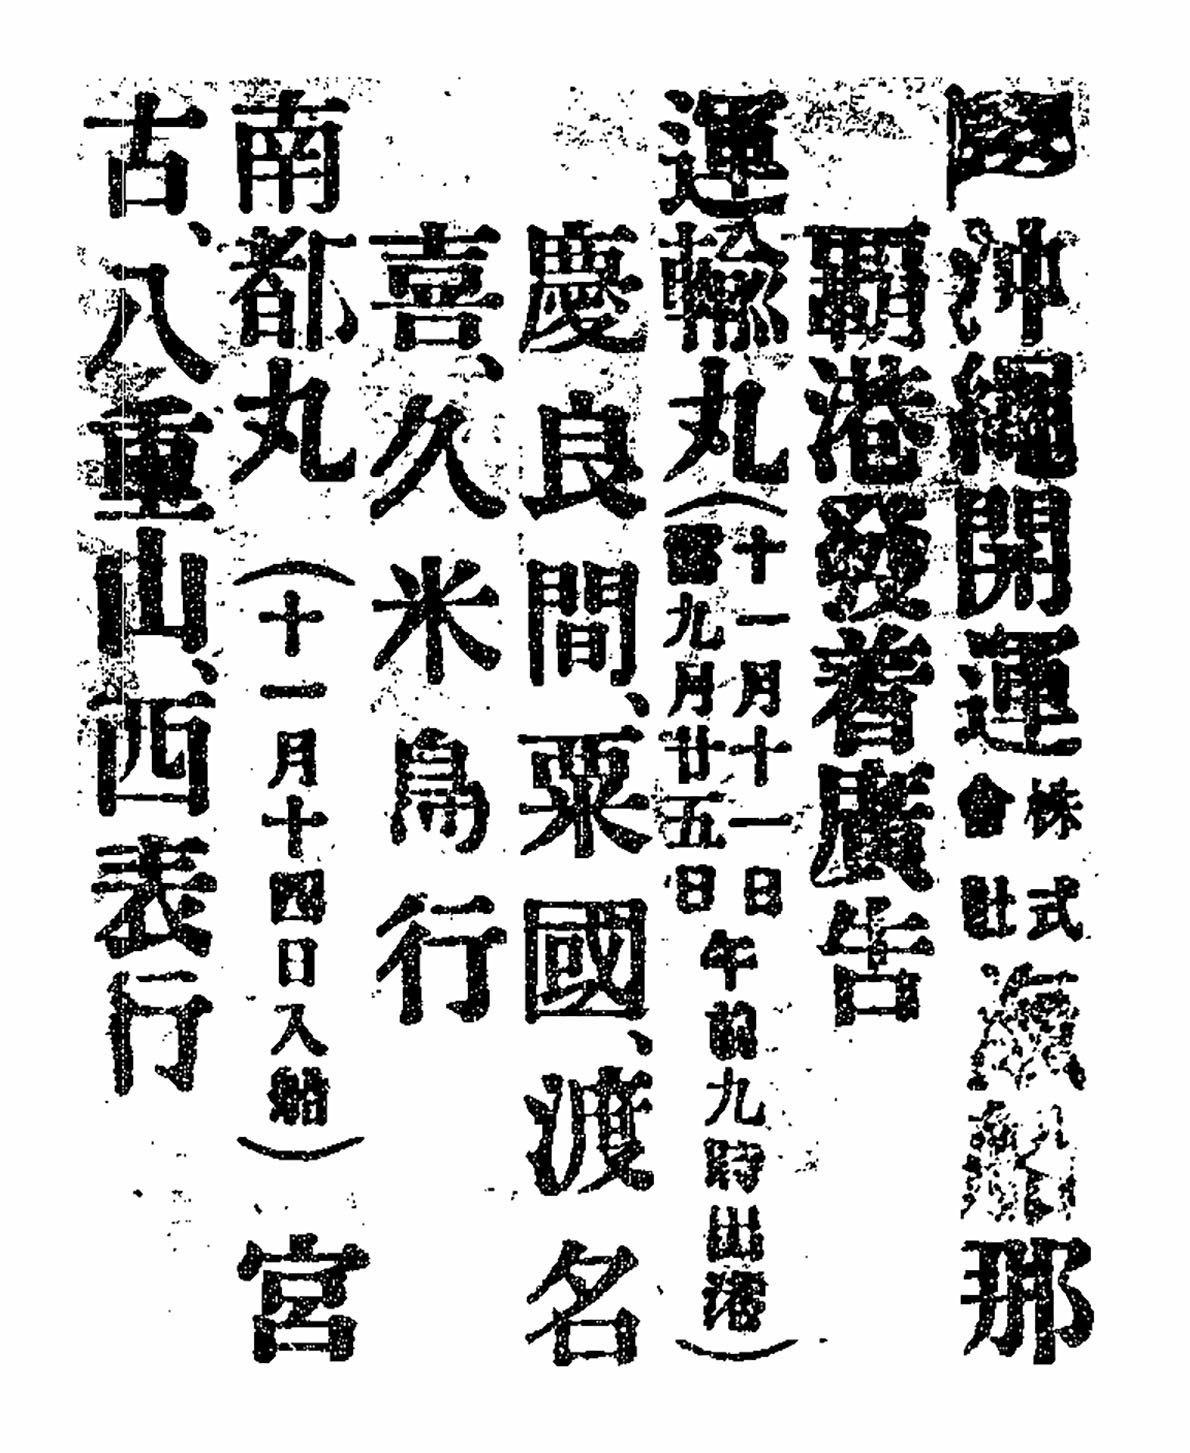 沖繩開運株式會社滊船那
覇港發着廣告
運輸丸(十一月十一日舊九月廿五日午前九時出港)
慶良間、粟國、渡名
喜、久米島行
南都丸(十一月十四日入船)宮
古、八重山、西表行